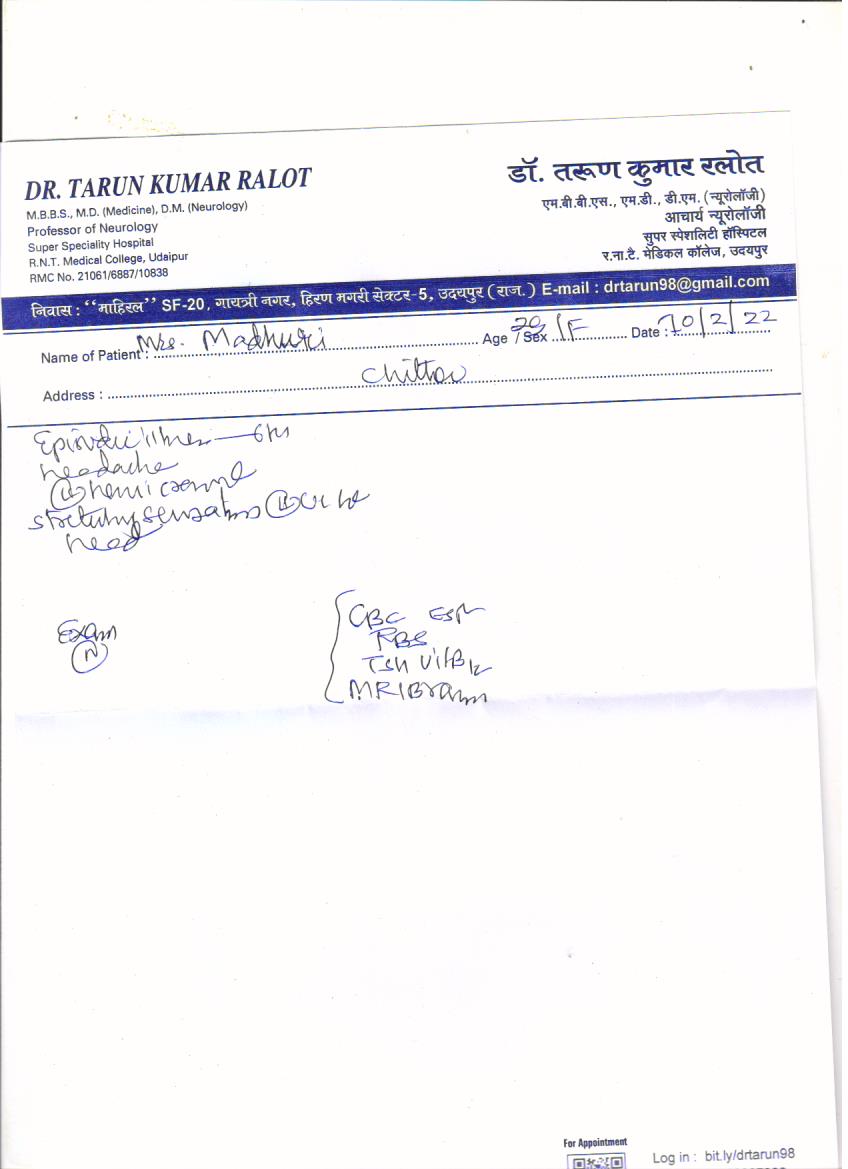 DR. TARUN KUMAR RALOT
M.B.B.S., M.D. (Medicine), D.M. (Neurology)
Professor of Neurology
Super Speciality Hospital
R.N.T. Medical College, Udaipur
RMC No. 21061/6887/10838
डॉ. तरूण कुमार रलोत
एम.बी.बी.एस., एम.डी., डी.एम. (न्यूरोलॉजी)
आचार्य न्यूरोलॉजी
सुपर स्पेशलिटी हॉस्पिटल
र.ना.टै. मेडिकल कॉलेज, उदयपुर
निवास : “माहिरल” SF-20, गायत्री नगर, हिरण मगरी सेक्टर-5, उदयपुर (राज.) E-mail : drtarun98@gmail.com
Name of Patient : Mrs. Madhuri Age / Sex /F Date : 10/2/22
Address : Chittor
Episodic illness
headache
hemicranial
sensations
head
Exam
N
CBC ESR
RBS
TSH Vit B12
MRI Brain
For Appointment
Log in : bit.ly/drtarun98